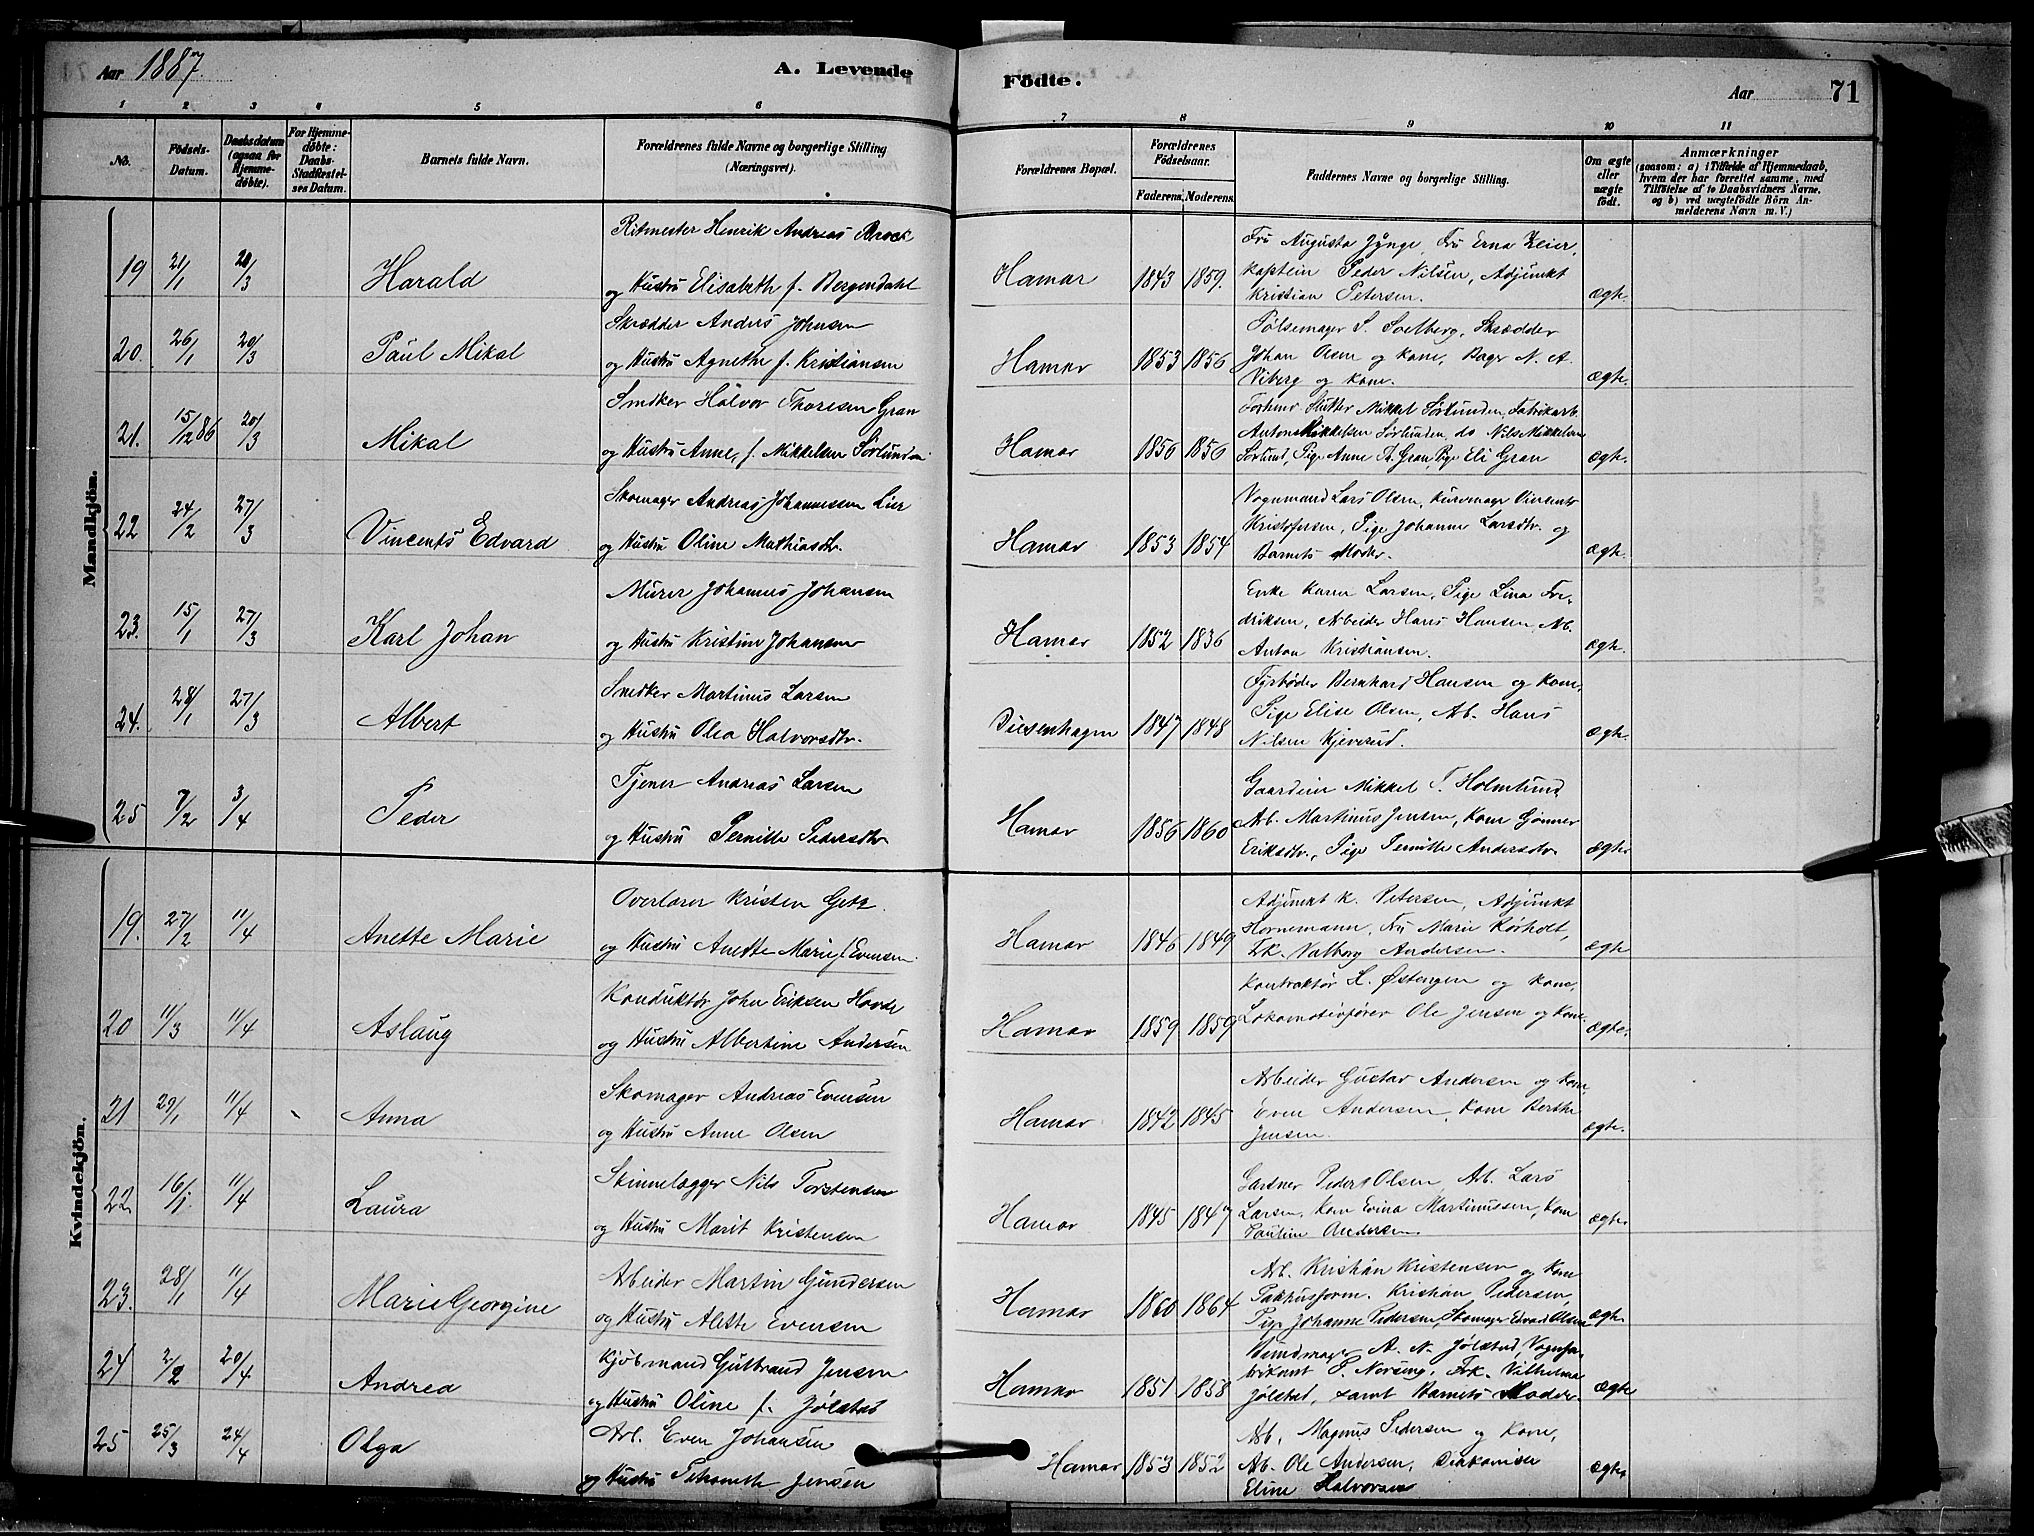 Aar 1887. A. Levende Födte. Aar 71
1 2 3 4 5 6 7 8 9 10 11
No. Födsels-Datum. Daabsdatum (ogsaa for Hjemmedöbte). For Hjemmedöbte: Daabs-Stadfæstelses Datum. Barnets fulde Navn. Forældrenes fulde Navne og borgerlige Stilling (Næringsvei). Forældrenes Bopæl. Forældrenes Födselsaar. Faderens. Moderens. Faddernes Navne og borgerlige Stilling. Om ægte eller uægte födt. Anmærkninger (saasom: a) i Tilfælde af Hjemmedaab, hvem der har forrettet samme, med Tilföielse af to Daabsvidners Navne, og b) ved uægtefödte Börn Anmelderens Navn m. V.)
Mandkjön.
Ritmester Henrik Andreas Brock
19 21/1 20/3 Harald og Hustru Elisabeth f. Bergendahl Hamar 1843 1859. ægte.
Fru Augusta Jynge, Fru Erna Zeier,
Kaptein Peder Nilsen, Adjunkt
Kristian Petersen.
Skrædder Andres Johnsen
20. 26/1 20/3 Paul Mikal og Hustru Agnethe f. Kristiansen Hamar 1853 1856 ægte.
Pølsemager S. Soelberg, Skrædder
Johan Olsen og Kone, Bager N. A.
Viberg og Kone.
Snedker Halvor Thoresen Gran
21. 15/12 86 20/3 Mikal og Hustru Anne, f. Mikkelsen Sørlunden Hamar 1856 1856 ægte.
Mikkel Sørlunden, Fabrikarb.
Anton Mikkelsen Sørlunden, do Nils Mikkelsen
Sørlund, Pige Anne Th. Gran, Pige Eli Gran
Skomager Andreas Johannessen Lier
22 24/2 27/3 Vincents Edvard og Hustru Oline Mathiasdtr. Hamar 1853 1854 ægte.
Vognmand Lars Olsen, Kurvemager Vincents
Kristofersen, Pige Johanne Larsdtr. og
Barnets Moder.
Murer Johannes Johansen
23. 15/1 27/3 Karl Johan og Hustru Kristine Johansen Hamar 1852 1836 ægte.
Enke Karen Larsen, Pige Lina Fre-
driksen, Arbeider Hans Hansen, Arb.
Anton Kristiansen.
Snedker Martinus Larsen
24. 28/1 27/3 Albert og Hustru Olea Halvorsdtr. Disenhagen 1847 1848 ægte.
Fyrbøder Bernhard Hansen og Kone,
Pige Elise Olsen, Arb. Hans
Nilsen Kjeverud.
Tjener Andreas Larsen
25 7/2 3/4 Peder og Hustru Pernille Pedersdtr Hamar 1856 1860 ægte
Gaardeier Mikkel T. Holmlund
Arb. Martinus Jensen, Kone Gunner
Eriksdtr., Pige Pernille Andersdtr
Kvindekjön.
Overlærer Kristen Getz
19. 27/2 11/4 Anette Marie og Hustru Anette Marie f. Evensen Hamar 1846 1849 ægte
Adjunkt K. Petersen, Adjunkt
Hornemann, Fru Marie Rørholt,
Frk. Valborg Andersen.
Konduktør John Eriksen Hovde
20 11/3 11/4 Aslaug og Hustru Albertine Andersen Hamar 1859 1859 ægte.
Kontraktør H. Østengen og Kone,
Lokomotivfører Ole Jensen og Kone.
Skomager Andreas Evensen
21 29/1 11/4 Anna og Hustru Anne Olsen Hamar 1842 1845 ægte.
Arbeider Gustav Andersen og Kone,
Even Andersen, Kone Berthe
Jensen.
Stenlægger Nils Torstensen
22 16/1 11/4 Laura og Hustru Marit Kristensen Hamar 1845 1847 ægte
Gartner Peder Olsen, Arb. Lars
Larsen, Kone Evina Martinussen, Kone
Pauline Andersen
Arbeider Martin Gundersen
23. 28/1 11/4 Marie Georgine og Hustru Alette Evensen Hamar 1860 1864 ægte
Arb. Kristian Kristensen og Kone
Pakhusform. Kristian Pedersen,
Pige Johanne Pedersen, Skomager Edvard Olsen
Kjøbmand Gulbrand Jensen
24 2/2 20/4 Andrea og Hustru Oline f. Jølstad Hamar 1851 1858 ægte
A. N. Jølstad, Vognfa-
brikant P. Norseng, Frk. Vilhelmine
Jølstad, samt Barnets Moder
Arb. Even Johansen
25 25/3 24/4 Olga og Hustru Jensen Hamar 1853 1852 ægte
Arb. Magnus Pedersen og Kone,
Arb. Ole Andersen, Diakonisse
Eline Halvorsen